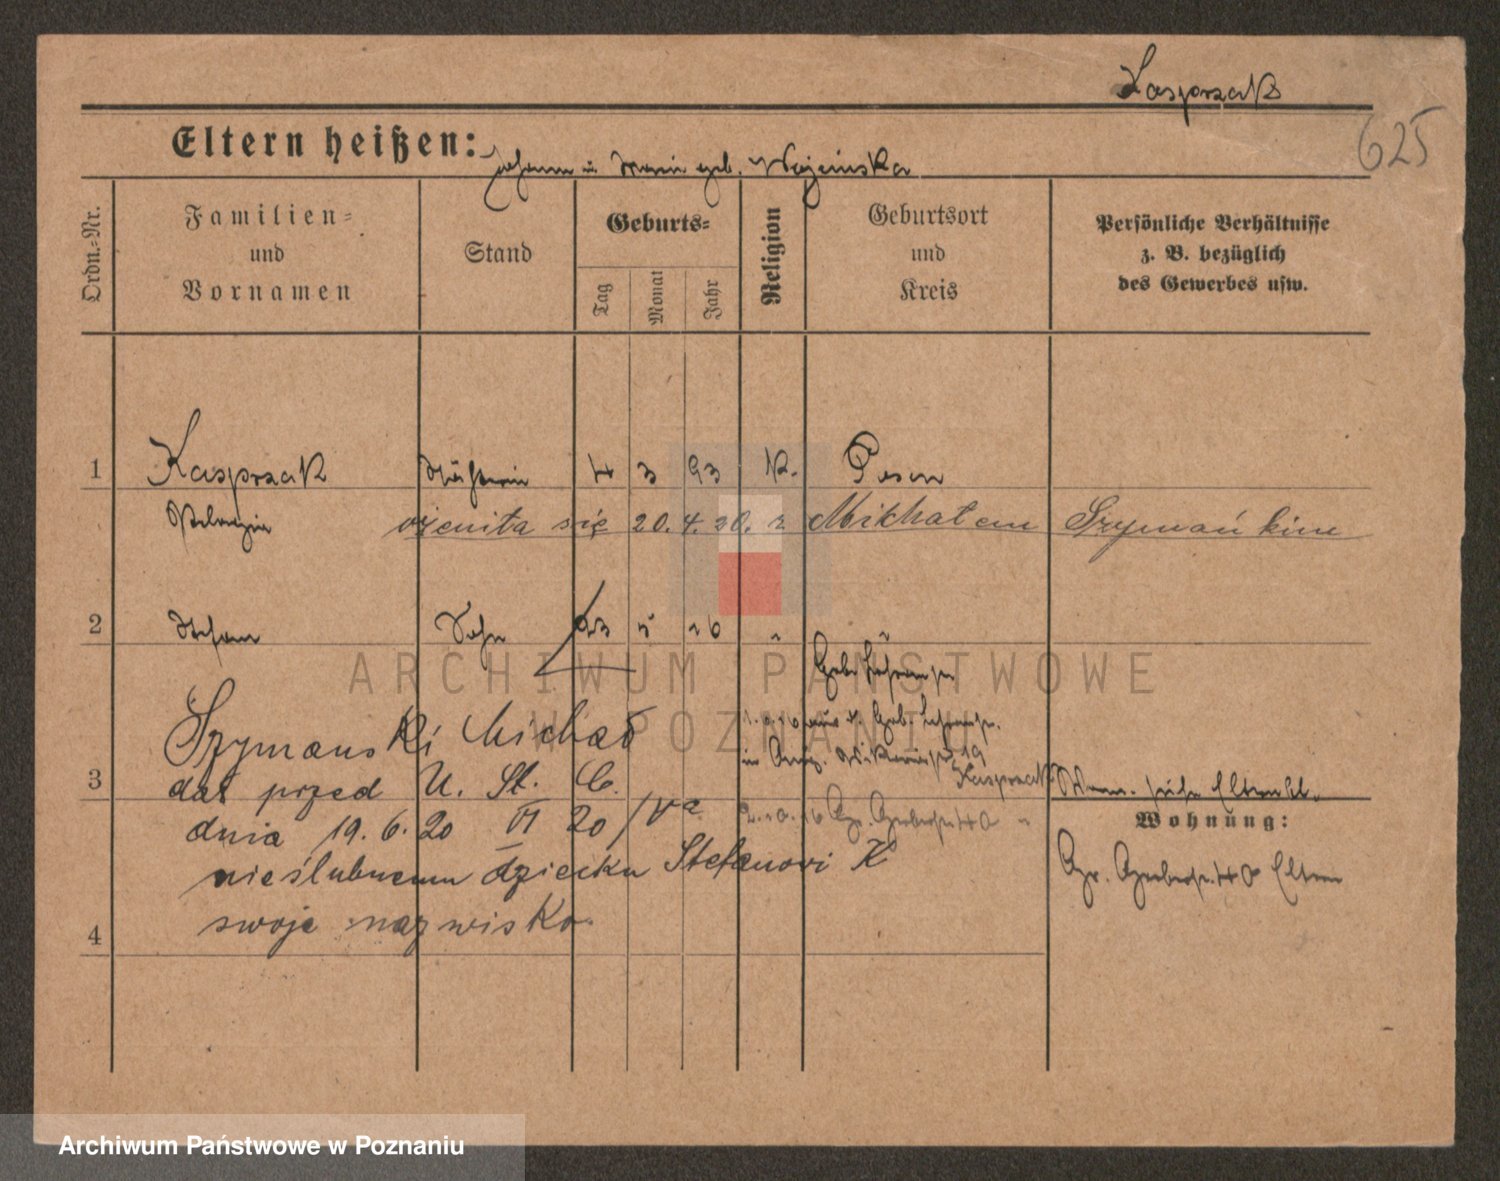 Kasprzak
625
Eltern heißen: Johann u. Marie geb. Wojcinska
Ordn.-Nr.
Familien- und Vornamen
Stand
Geburts-
Tag
Monat
Jahr
Religion
Geburtsort und Kreis
Persönliche Verhältnisse
z. B. bezüglich
des Gewerbes usw.
1 Kasprzak Näherin 4 3 93 K. Posen
Pelagia ożeniła się 20. 4. 20. z Michałem Szymańskim
2 Stefan Sohn 23 5 16
ARCHIWUM PAŃSTWOWE
W POZNANIU
Szymanski Michał
3 dał przed U. St. C.
dnia 19. 6. 20 VI 20
nieślubnemu dziecku Stefanowi K
4 swoje nazwisko
Kasprzak
Wohnung:
Gr. Gerberstr. 40 Eltern
Archiwum Państwowe w Poznaniu